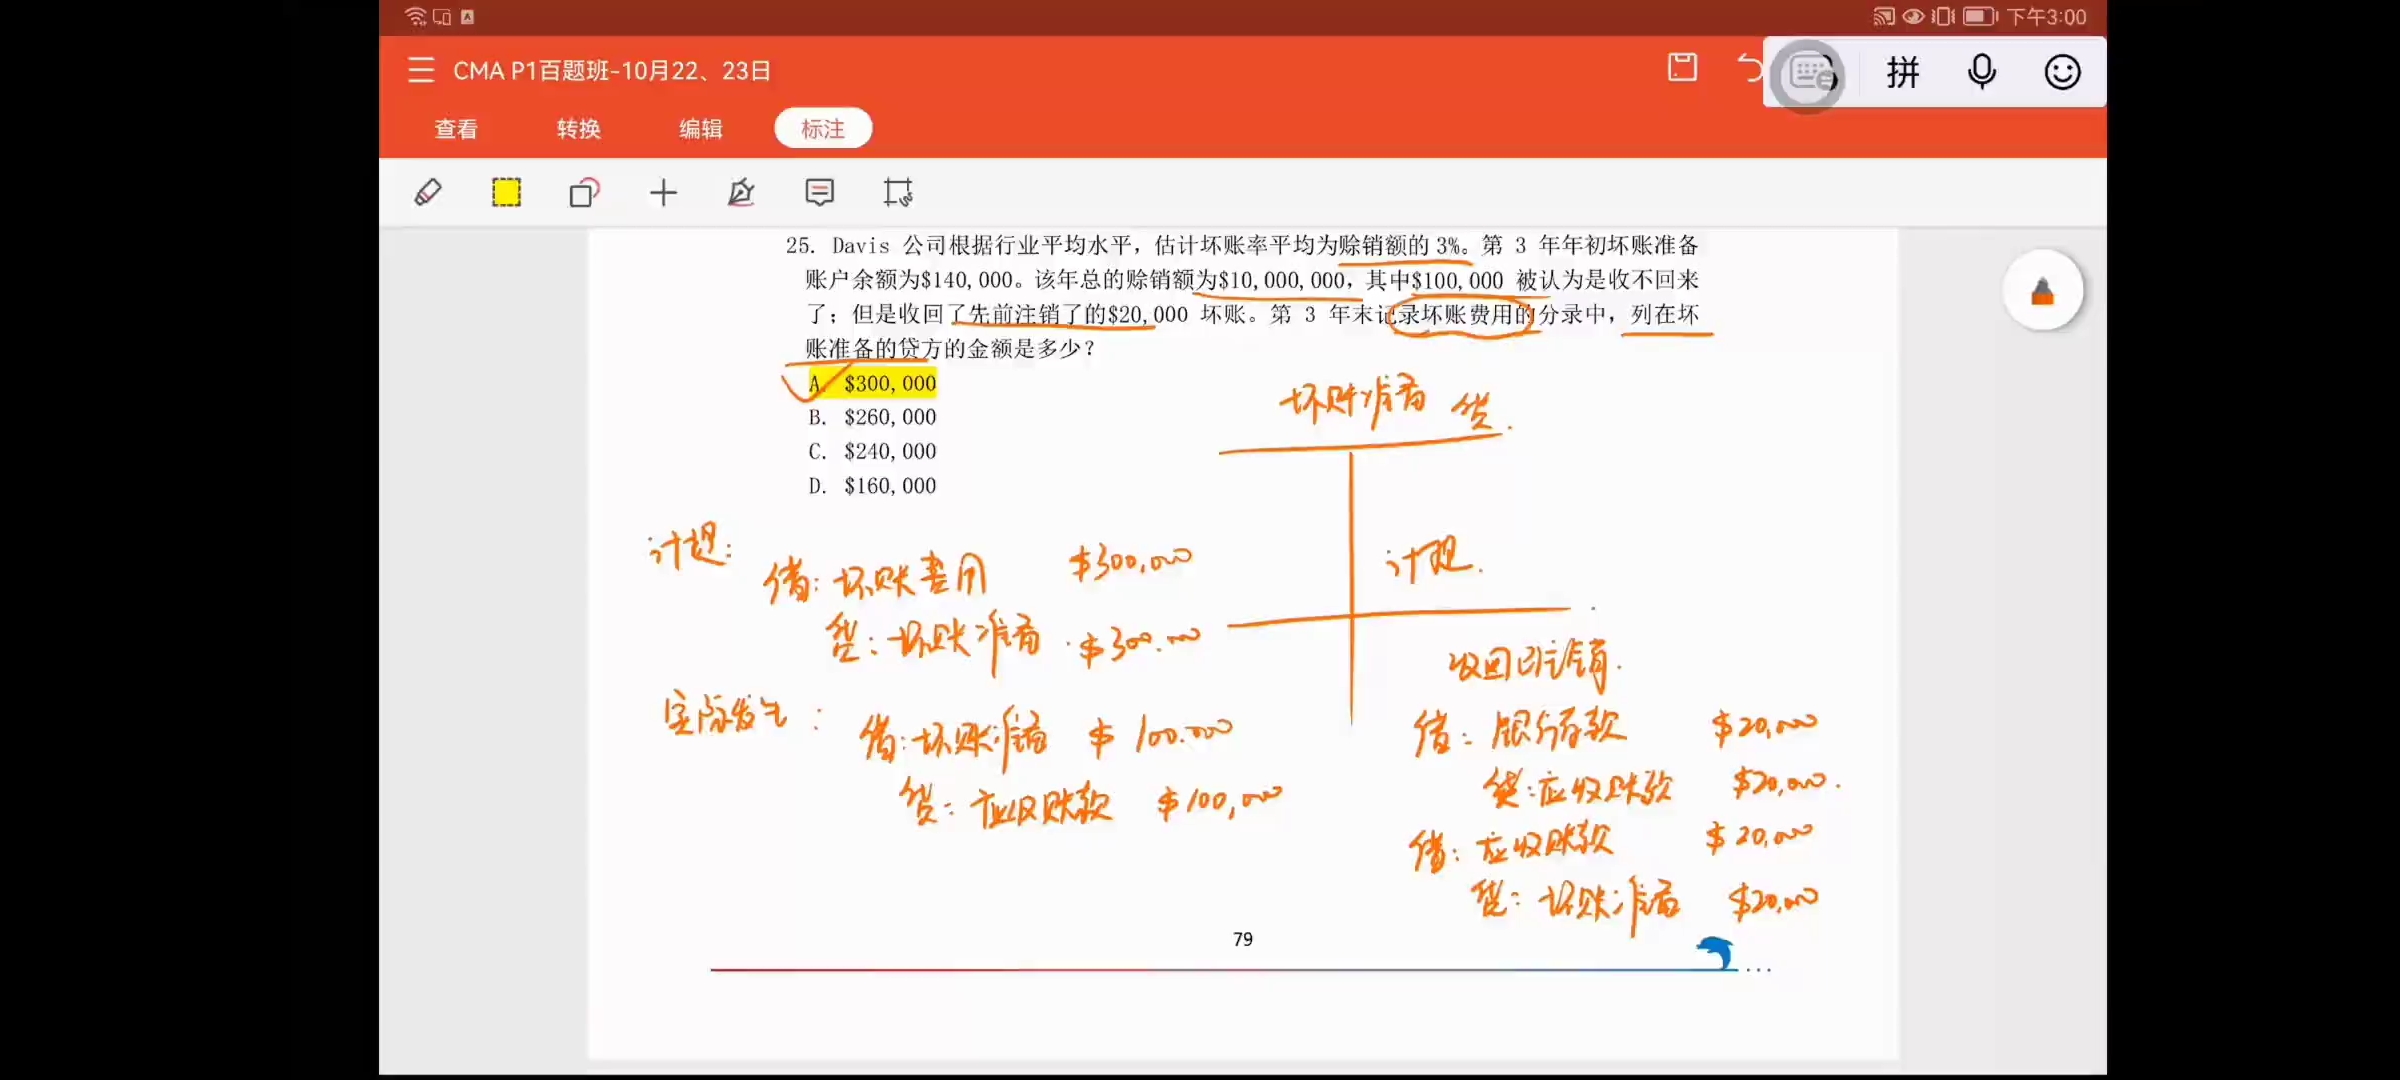 下午3:00
CMA P1百题班-10月22、23日
拼
查看 转换 编辑 标注
25. Davis 公司根据行业平均水平，估计坏账率平均为赊销额的 3%。第 3 年年初坏账准备
账户余额为$140,000。该年总的赊销额为$10,000,000，其中$100,000 被认为是收不回来
了；但是收回了先前注销了的$20,000 坏账。第 3 年末记录坏账费用的分录中，列在坏
账准备的贷方的金额是多少？
A. $300,000
B. $260,000
C. $240,000
D. $160,000
坏账准备 贷
计提
计提:
借: 坏账费用 $300,000
贷: 坏账准备 $300,000
实际发生:
借: 坏账准备 $100,000
贷: 应收账款 $100,000
收回已注销
借: 银行存款 $20,000
贷: 应收账款 $20,000
借: 应收账款 $20,000
贷: 坏账准备 $20,000
79